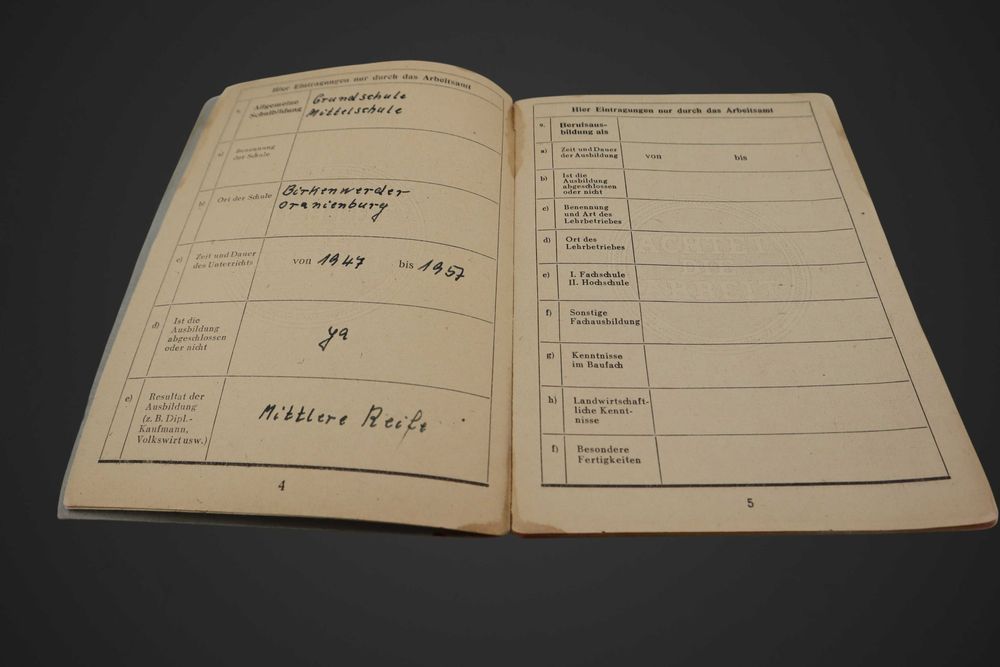 Hier Eintragungen nur durch das Arbeitsamt
Allgemeine
Schulbildung
Grundschule
Mittelschule
a) Benennung
der Schule
b) Ort der Schule
Birkenwerder
Oranienburg
c) Zeit und Dauer
des Unterrichts
von 1947 bis 1957
d) Ist die
Ausbildung
abgeschlossen
oder nicht
ya
e) Resultat der
Ausbildung
(z. B. Dipl.-
Kaufmann,
Volkswirt usw.)
Mittlere Reife
4
Hier Eintragungen nur durch das Arbeitsamt
Berufsaus-
bildung als
a) Zeit und Dauer
der Ausbildung
von bis
b) Ist die
Ausbildung
abgeschlossen
oder nicht
c) Benennung
und Art des
Lehrbetriebes
d) Ort des
Lehrbetriebes
e) I. Fachschule
II. Hochschule
f) Sonstige
Fachausbildung
g) Kenntnisse
im Baufach
h) Landwirtschaft-
liche Kennt-
nisse
f) Besondere
Fertigkeiten
5